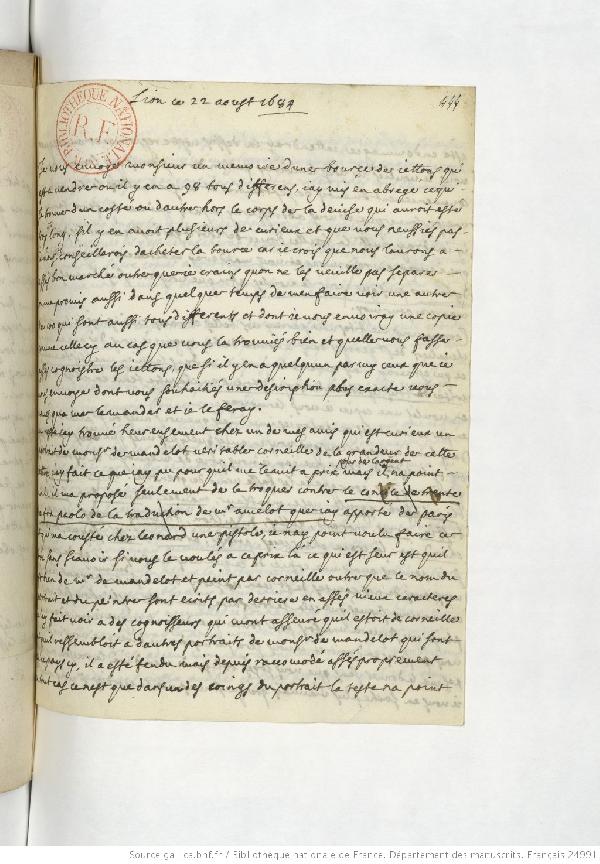 Lion ce 22 aoust 1684
444
BIBLIOTHEQUE NATIONALE
R.F.
MANUSCRITS
Je vous envoye monsieur un memoire d'une bource des iettons qui
est a vendre ou il y en a 98 tous differens, iay mis en abregé ce qui
se trouve d'un costé ou d'autre hors le corps de la devise qui auroit esté
trop long. s'il y en avoit plusieurs de curieux et que vous n'eussiés pas
vous conseillerois dacheter la bource car ie crois que nous laurons a
assés bon marché outre que ie crains quon ne les veuille pas separer
ma promis aussi dans quelque temps de men faire voir une autre
qui sont aussi tous differents et dont ie vous envoiray une copie
comme celle cy au cas que vous la trouviés bien et quelle vous fasse
assés cognoistre les iettons, que si il y en a quelquun parmy ceux que ie
vous envoye dont vous souhaittiés une description plus exacte vous
navés qua me le mander et ie le feray.
iay trouvé heureusement chez un de mes amis qui est curieux un
portrait de monsr de mandelot veritable corneille de la grandeur de celle
iay fait ce que iay pu pour quil me le mit a prix mais il na point
pour de largent
il ma proposé seulement de le troquer contre le concile de trente
de fra paolo de la traduction de mr amelot que iay apporté de paris
et qui me couste chez leonard une pistole, ie nay point voulu faire ce
sans scavoir si vous le voulés a ce prix là ce qui est seur est quil
est bien de mr de mandelot et peint par corneille outre que le nom du
portrait et du peintre sont ecrits par derriere en assés vieux caracteres
lay fait voir a des cognoisseurs qui mont asseuré quil estoit de corneille
et quil ressembloit a d'autres portraits de monsr de mandelot qui sont
en ce pays cy, il a esté fendu mais depuis racomodé assés proprement
en tout cas ce nest que dans un des coings du portrait la teste na point
Source gallica.bnf.fr / Bibliothèque nationale de France. Département des manuscrits. Français 24991